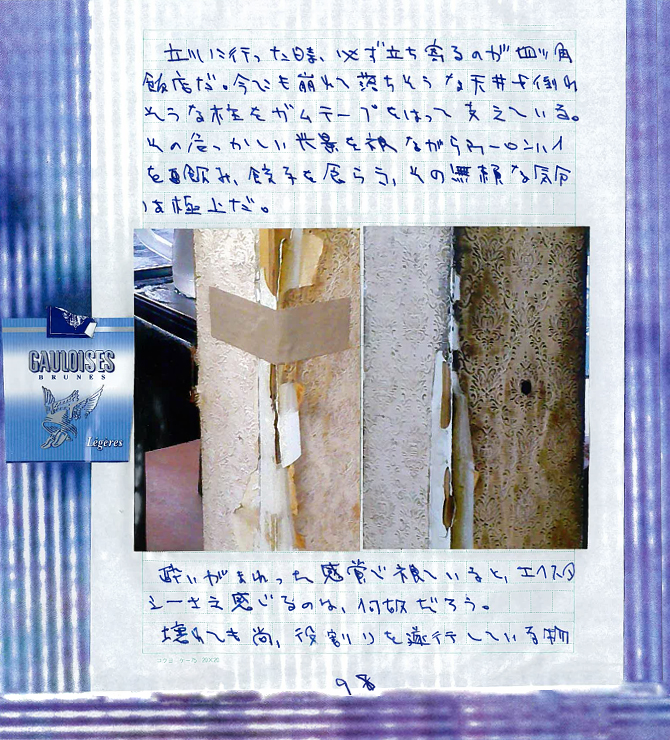 立川に行った時、必ず立ち寄るのが四ツ角
飯店だ。今でも崩れて落ちそうな天井や倒れ
そうな柱をガムテープをはって支えている。
その危っかしい光景を視ながらウーロンハイ
を飲み、餃子を食らう、その無頼な気分
は極上だ。
GAULOISES
BRUNES
Legeres
酔いがまわった感覚で視ていると、エクスタ
シーさえ感じるのは、何故だろう。
壊れても尚、役割りを遂行している物
コクヨ ケー75 20×20